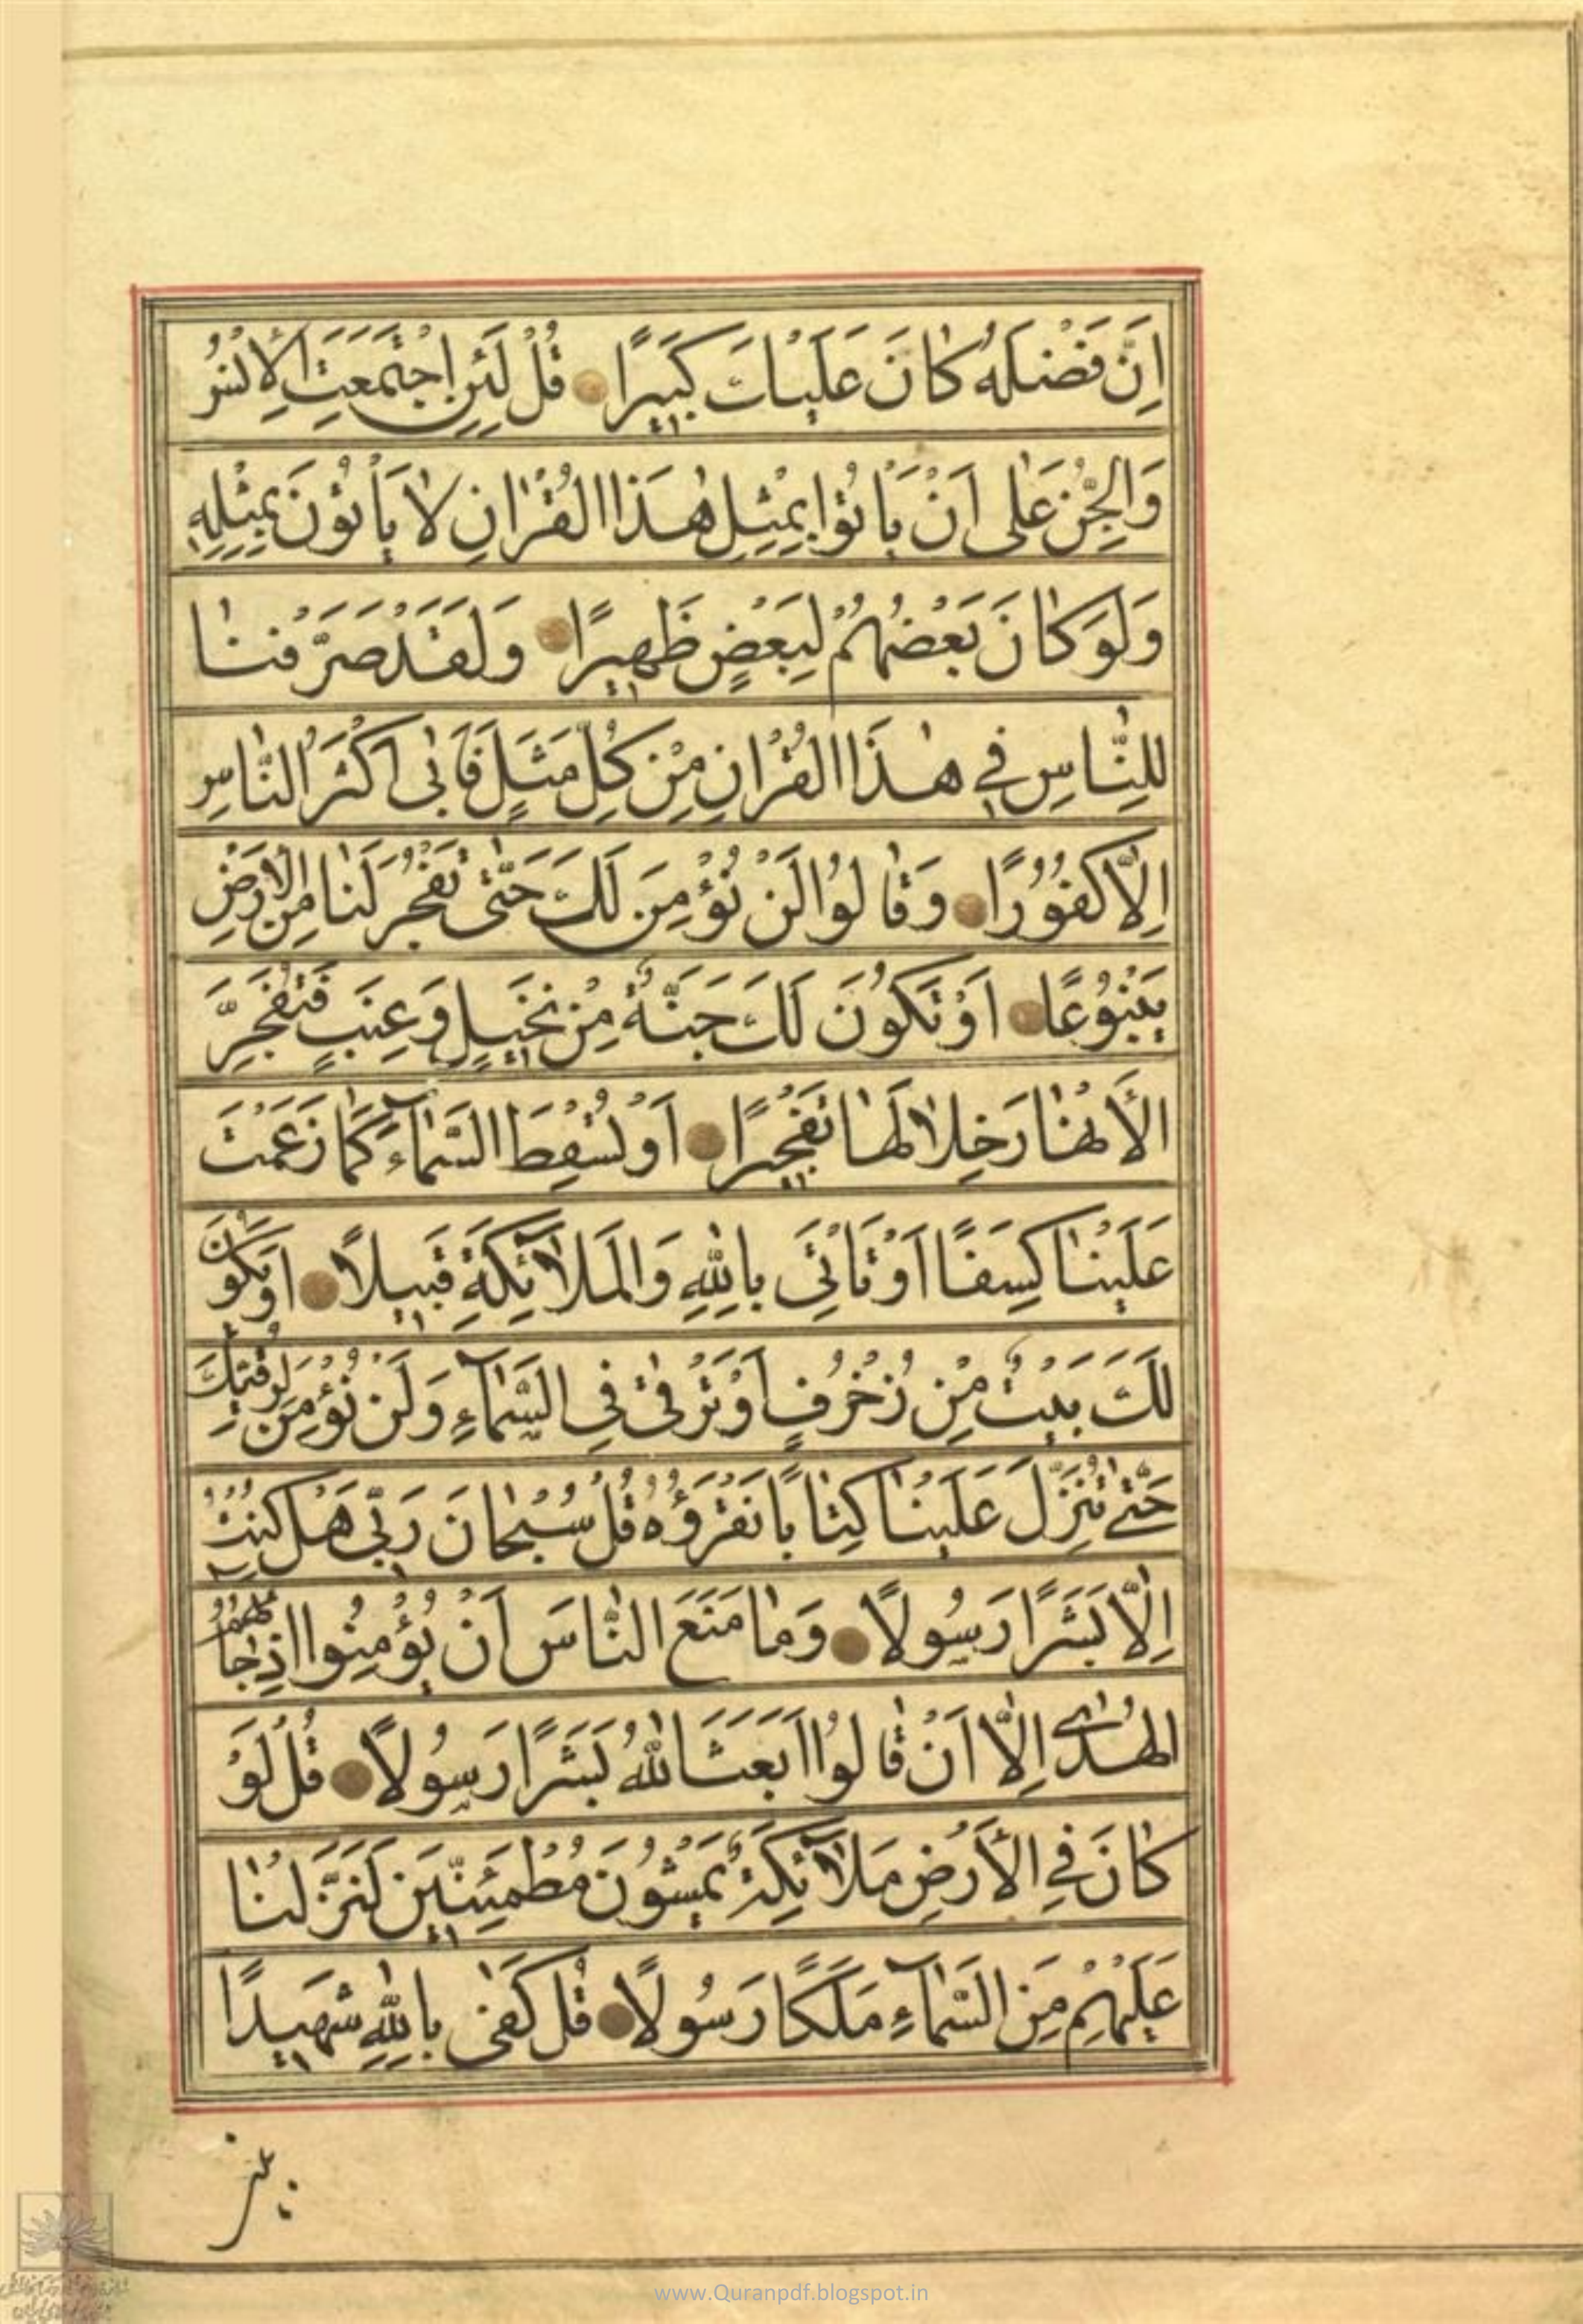 اِنَّ فَضْلَهُ كٰانَ عَلَيْكَ كَبيرًا قُلْ لَئِنِ اجْتَمَعَتِ الْاِنْسُ
وَالْجِنُّ عَلٰى اَنْ يَأْتُوا بِمِثْلِ هٰذَا الْقُرْاٰنِ لٰا يَأْتُونَ بِمِثْلِهِ
وَلَوْ كٰانَ بَعْضُهُمْ لِبَعْضٍ ظَهيرًا وَلَقَدْ صَرَّفْنٰا
لِلنّٰاسِ في هٰذَا الْقُرْاٰنِ مِنْ كُلِّ مَثَلٍ فَاَبٰى اَكْثَرُ النّٰاسِ
اِلّٰا كُفُورًا وَقٰالُوا لَنْ نُؤْمِنَ لَكَ حَتّٰى تَفْجُرَ لَنٰا مِنَ الْاَرْضِ
يَنْبُوعًا اَوْ تَكُونَ لَكَ جَنَّةٌ مِنْ نَخيلٍ وَعِنَبٍ فَتُفَجِّرَ
الْأَنْهٰارَ خِلٰالَهٰا تَفْجيرًا اَوْ تُسْقِطَ السَّمٰآءَ كَمٰا زَعَمْتَ
عَلَيْنٰا كِسَفًا اَوْ تَأْتِيَ بِاللّٰهِ وَالْمَلٰآئِكَةِ قَبيلًا اَوْ يَكُونَ
لَكَ بَيْتٌ مِنْ زُخْرُفٍ اَوْ تَرْقٰى فِي السَّمٰآءِ وَلَنْ نُؤْمِنَ لِرُقِيِّكَ
حَتّٰى تُنَزِّلَ عَلَيْنٰا كِتٰابًا نَقْرَؤُهُ قُلْ سُبْحٰانَ رَبّي هَلْ كُنْتُ
اِلّٰا بَشَرًا رَسُولًا وَمٰا مَنَعَ النّٰاسَ اَنْ يُؤْمِنُوا اِذْ جٰاءَهُمُ
الْهُدٰى اِلّٰا اَنْ قٰالُوا اَبَعَثَ اللّٰهُ بَشَرًا رَسُولًا قُلْ لَوْ
كٰانَ فِي الْأَرْضِ مَلٰآئِكَةٌ يَمْشُونَ مُطْمَئِنّينَ لَنَزَّلْنٰا
عَلَيْهِمْ مِنَ السَّمٰآءِ مَلَكًا رَسُولًا قُلْ كَفٰى بِاللّٰهِ شَهيدًا
www.Quranpdf.blogspot.in